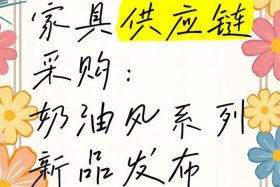 家具供应链
采购：
奶油风系列
新品发布